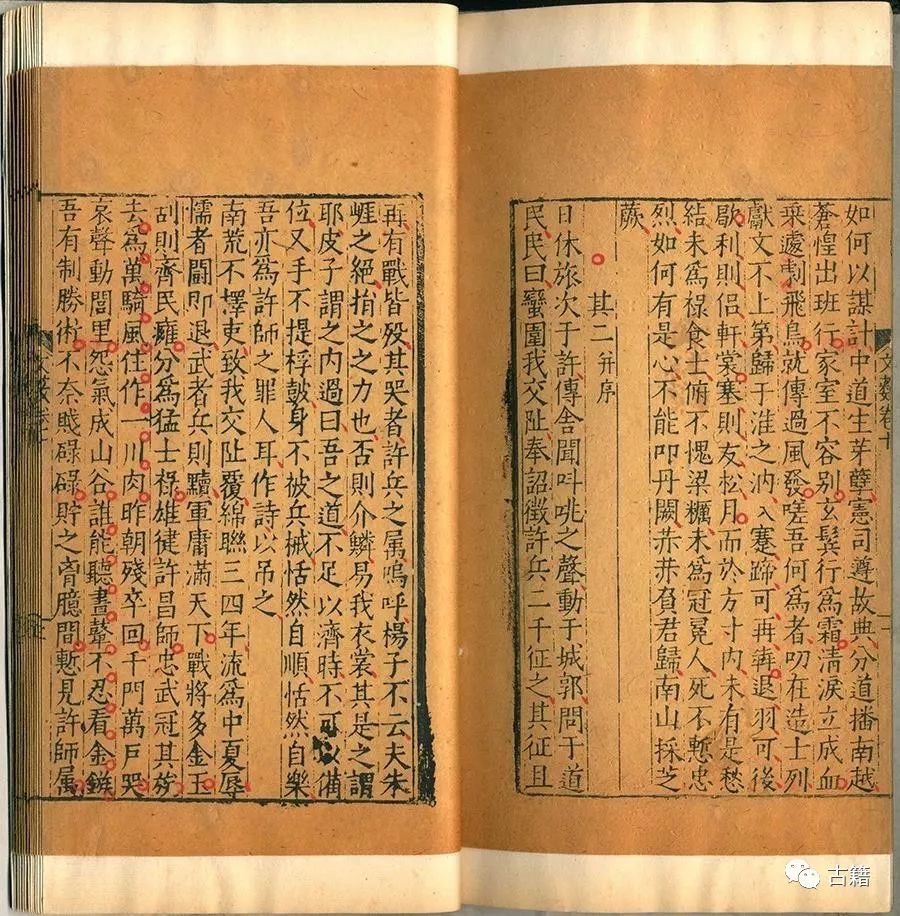 如何以謀計中道生芽孽憲司遵故典分道播南越
蒼惶出班行家室不容别玄鬂行為霜清淚立成血
乗遽剌飛鳥就傳過風發嗟吾何為者叨在造士列
獻文不上第歸于淮之汭蹇蹄可再犇退羽可後
歇利則侣軒裳塞則友松月而於方寸内未有是愁
結未為禄食士俯不愧梁糲未為冠冕人死不慙忠
烈如何有是心不能叩丹闕赤赤負君歸南山採芝
蕨
其二并序
日休旅次于許傳舍聞叫咷之聲動于城郭問于道
民民曰蠻圍我交阯奉詔徴許兵二千征之其征且
文藪卷十
再有戰皆殁其哭者許兵之属嗚呼楊子不云夫朱
崖之絶捐之之力也否則介鱗易我衣裳其是之謂
耶皮子謂之内過曰吾之道不足以濟時不可以備
位又手不提桴鼓身不被兵械恬然自順恬然自樂
吾亦為許師之罪人耳作詩以吊之
南荒不擇吏致我交阯覆綿聯三四年流為中夏辱
懦者鬪即退武者兵則黷軍庸滿天下戰將多金玉
刮則齊民癰分為猛士禄雄徤許昌師忠武冠其族
去為萬騎風住作一川肉昨朝殘卒回千門萬户哭
哀聲動閭里怨氣成山谷誰能聽晝鼙不忍看金鏃
吾有制勝術不奈賤碌碌貯之胷臆間慙見許師属
文藪卷十
古籍